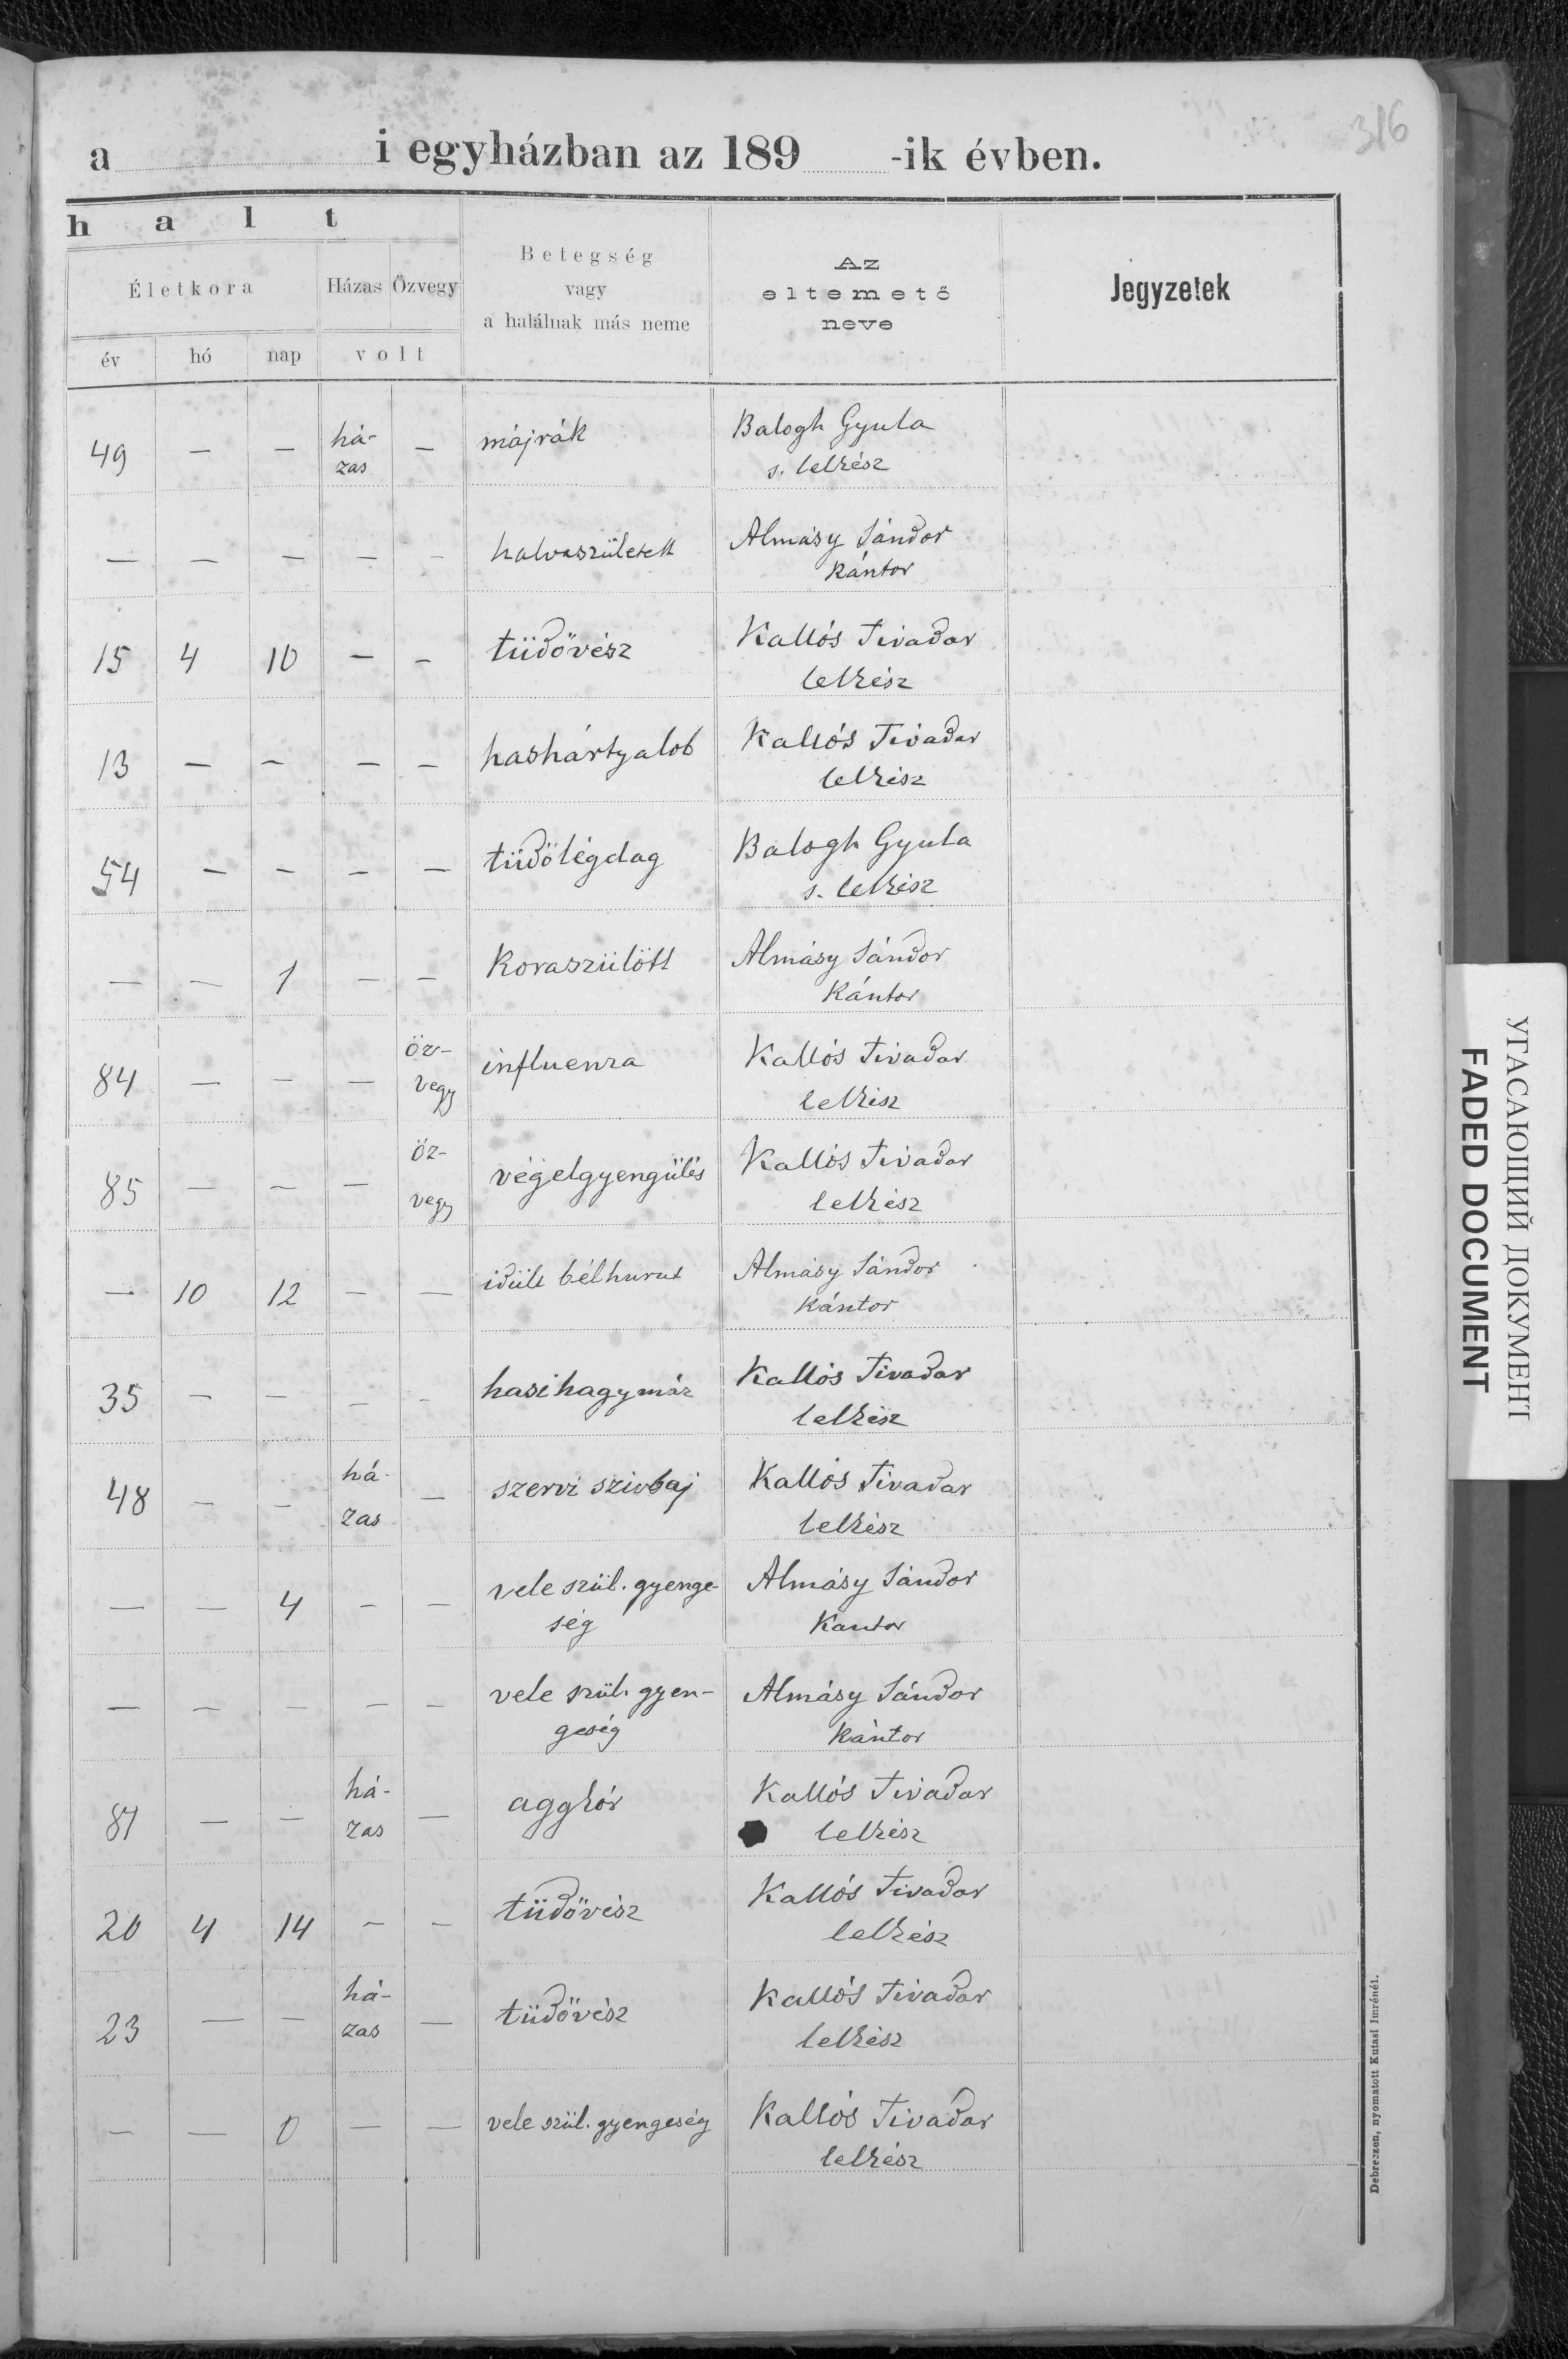 316
a i egyházban az 189 -ik évben.
halt
Életkora
Házas Özvegy
Betegség
vagy
a halálnak más neme
Az
eltemető
neve
Jegyzetek
év hó nap volt
49 — — há- — májrák Balogh Gyula
zas s. lelkész
— — — — — halvaszületett Almásy Sándor
kántor
15 4 10 — — tüdővész Kallós Tivadar
lelkész
13 — — — — hashártyalob Kallós Tivadar
lelkész
54 — — — — tüdőlégdag Balogh Gyula
s. lelkész
— — 1 — — Koraszülött Almásy Sándor
Kántor
84 — — — öz- influenza Kallós Tivadar
vegy lelkész
85 — — — öz- végelgyengülés Kallós Tivadar
vegy lelkész
— 10 12 — — idült bélhurut Almásy Sándor
kántor
35 — — — — hasi hagymáz Kallós Tivadar
lelkész
48 — — há- — szervi szivbaj Kallós Tivadar
zas lelkész
— — 4 — — vele szül. gyenge- Almásy Sándor
ség Kantor
— — — — — vele szül. gyen- Almásy Sándor
geség kántor
— — há- — aggkór Kallós Tivadar
zas lelkész
20 4 14 — — tüdővész Kallós Tivadar
lelkész
23 — — há- — tüdővész Kallós Tivadar
zas lelkész
— — 0 — — vele szül. gyengeség Kallós Tivadar
lelkész
Debreczen, nyomatott Kutasi Imrénél.
УГАСАЮЩИЙ ДОКУМЕНТ
FADED DOCUMENT